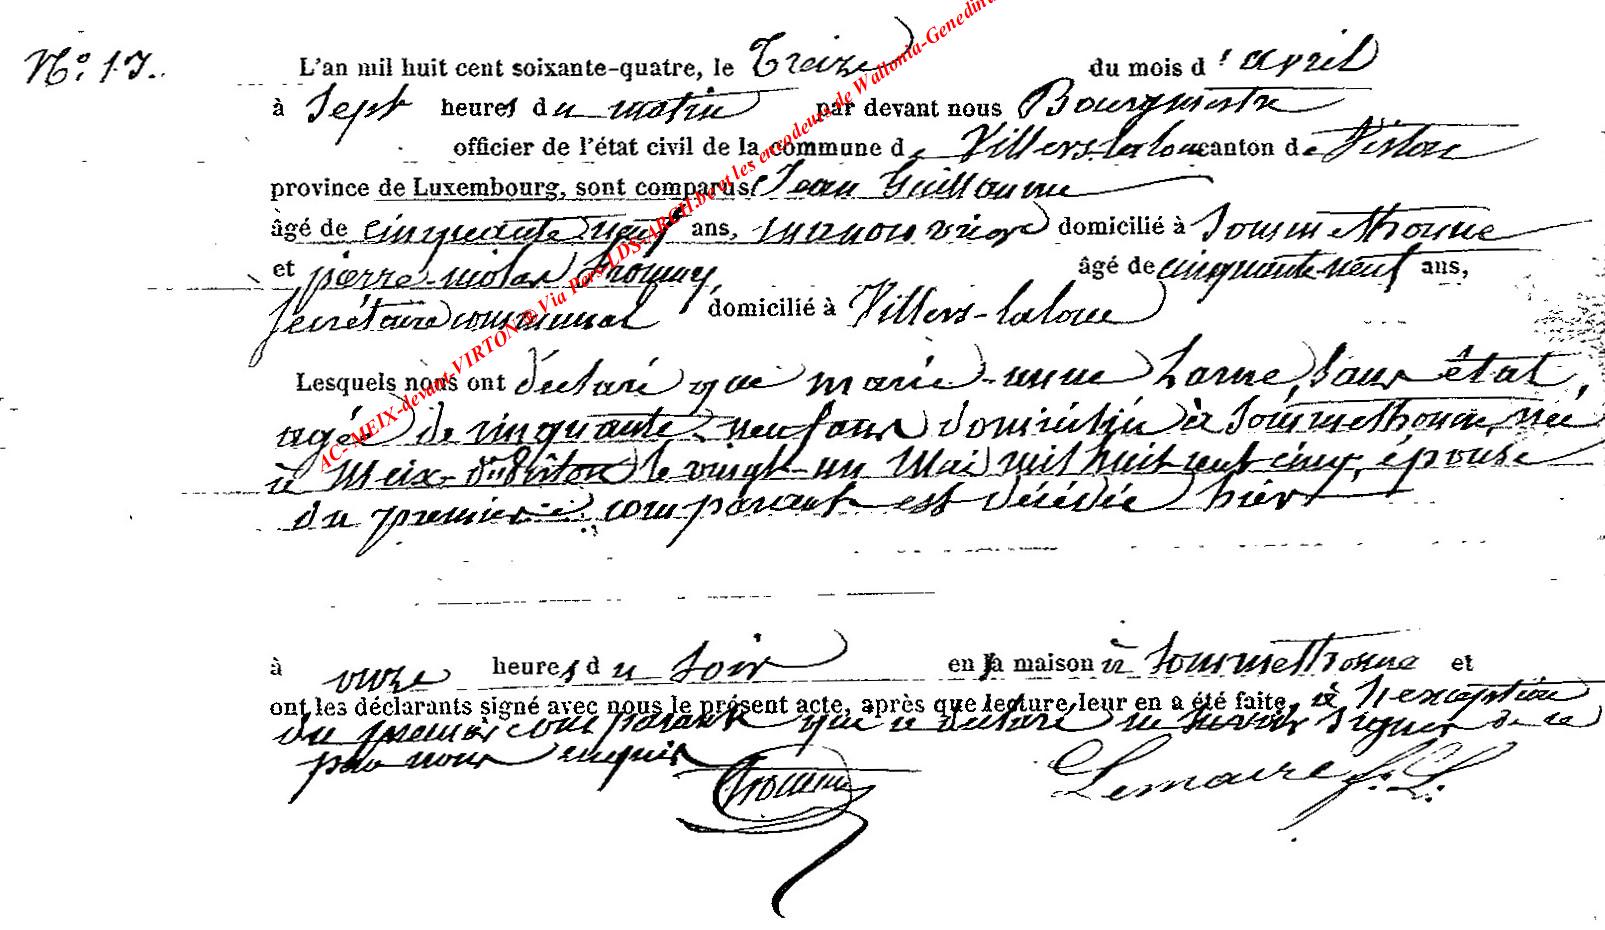 N° 17.
L'an mil huit cent soixante-quatre, le Treize du mois d'avril
à Sept heures du matin par devant nous Bourgmestre
officier de l'état civil de la commune de Villers-laloue canton de Virton
province de Luxembourg, sont comparus Jean Guillaume
âgé de cinquante neuf ans, manouvrier domicilié à Sommethonne
et pierre-nicolas âgé de cinquante-neuf ans,
Secrétaire communal domicilié à Villers-laloue
Lesquels nous ont déclaré que marie-anne sans état,
agée de cinquante neuf ans domiciliée à Sommethonne, née
à Meix-dt Virton le vingt-un Mai mil huit cent cinq, épouse
du premier comparant est décédée hier
à onze heures du Soir en sa maison à Sommethonne et
ont les déclarants signé avec nous le présent acte, après que lecture leur en a été faite, à l'exception
du premier comparant que a déclaré ne savoir signer de ce
par nous enquis
Lemaire f. L.
AC-MEIX-devant-VIRTON @ Via Pers-LDS-ARCH.be et les encodeurs de Wallonia-Genedin